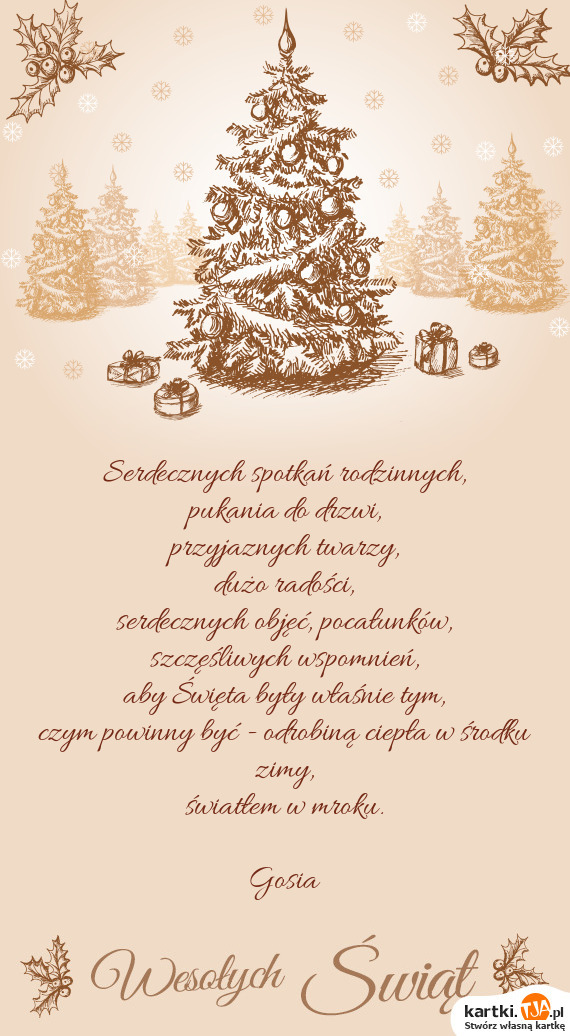 Serdecznych spotkań rodzinnych,
pukania do drzwi,
przyjaznych twarzy,
dużo radości,
serdecznych objęć, pocałunków,
szczęśliwych wspomnień,
aby Święta były właśnie tym,
czym powinny być - odrobiną ciepła w środku
zimy,
światłem w mroku.
Gosia
Wesołych Świąt
kartki.TJA.pl
Stwórz własną kartkę